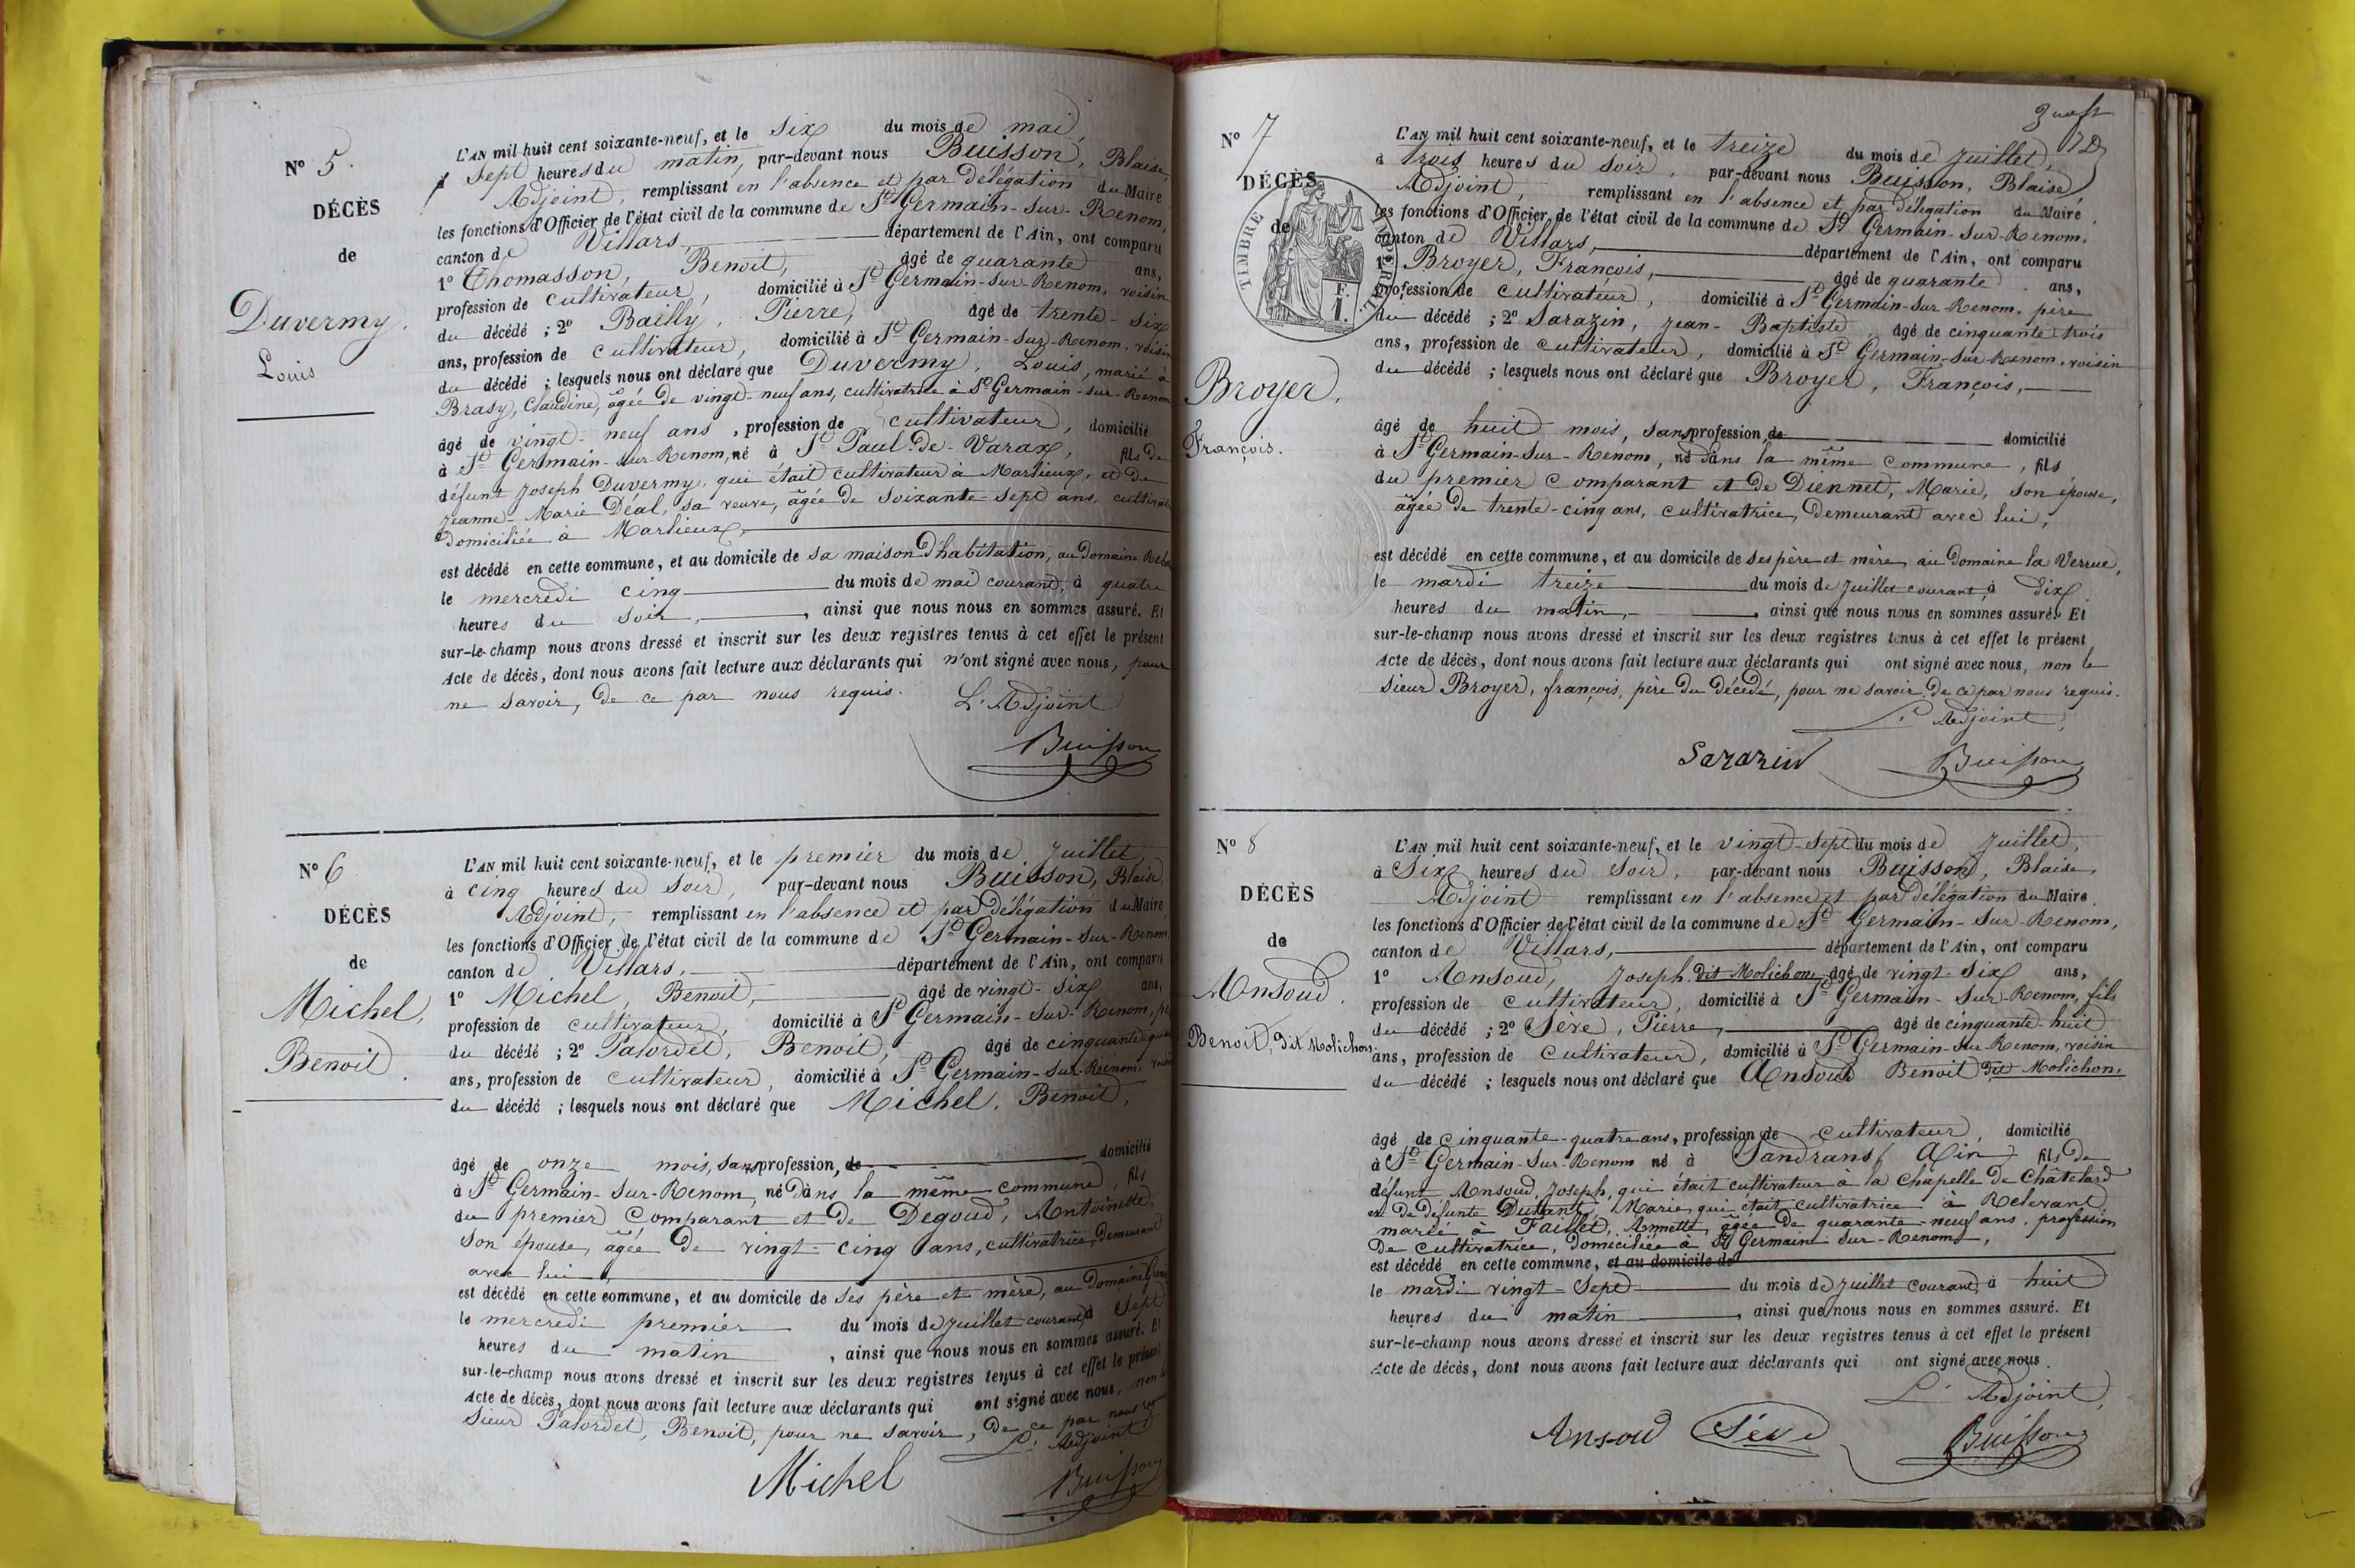 N° 5.
DÉCÈS
de
Duvermy,
Louis
L'AN mil huit cent soixante-neuf, et le six du mois de mai,
à sept heures du matin, par-devant nous Buisson, Blaise,
Adjoint, remplissant en l'absence et par délégation du Maire
les fonctions d'Officier de l'état civil de la commune de St Germain-sur-Renom,
canton de Villars, département de l'Ain, ont comparu
1° Thomasson, Benoit, âgé de quarante ans,
profession de cultivateur, domicilié à St Germain-sur-Renom, voisin
du décédé ; 2° Bailly, Pierre, âgé de trente-six
ans, profession de cultivateur, domicilié à St Germain-sur-Renom, voisin
du décédé ; lesquels nous ont déclaré que Duvermy, Louis, marié à
Brasy, Claudine, âgée de vingt-neuf ans, cultivatrice à St Germain-sur-Renom
âgé de vingt-neuf ans, profession de cultivateur, domicilié
à St Germain-sur-Renom, né à St Paul-de-Varax, fils de
défunt Joseph Duvermy, qui était cultivateur à Marlieux, et de
Jeanne-Marie Déal, sa veuve, âgée de soixante-sept ans,
domiciliée à Marlieux,
est décédé en cette commune, et au domicile de sa maison d'habitation, au Domaine
le mercredi cinq du mois de mai courant, à quatre
heures du soir, ainsi que nous nous en sommes assuré. Et
sur-le-champ nous avons dressé et inscrit sur les deux registres tenus à cet effet le présent
Acte de décès, dont nous avons fait lecture aux déclarants qui n'ont signé avec nous, pour
ne savoir, de ce par nous requis. L'Adjoint
Buisson
N° 6
DÉCÈS
de
Michel,
Benoit.
L'AN mil huit cent soixante-neuf, et le premier du mois de Juillet,
à cinq heures du soir, par-devant nous Buisson, Blaise,
Adjoint, remplissant en l'absence et par délégation du Maire
les fonctions d'Officier de l'état civil de la commune de St Germain-sur-Renom,
canton de Villars, département de l'Ain, ont comparu
1° Michel, Benoit, âgé de vingt-six ans,
profession de cultivateur, domicilié à St Germain-sur-Renom,
du décédé ; 2° Palordet, Benoit, âgé de cinquante
ans, profession de cultivateur, domicilié à St Germain-sur-Renom,
du décédé ; lesquels nous ont déclaré que Michel, Benoit,
âgé de onze mois, sans profession, de domicilié
à St Germain-sur-Renom, né dans la même commune, fils
du premier comparant et de Degoud, Antoinette,
son épouse, âgée de vingt-cinq ans, cultivatrice, demeurant
avec lui,
est décédé en cette commune, et au domicile de ses père et mère, au Domaine
le mercredi premier du mois de juillet courant, à sept
heures du matin, ainsi que nous nous en sommes assuré. Et
sur-le-champ nous avons dressé et inscrit sur les deux registres tenus à cet effet le présent
Acte de décès, dont nous avons fait lecture aux déclarants qui ont signé avec nous, non
sieur Palordet, Benoit, pour ne savoir, de ce par nous
L'Adjoint
Michel Buisson
N° 7
DÉCÈS
de
TIMBRE
F.
1.
Broyer,
François.
L'AN mil huit cent soixante-neuf, et le treize du mois de juillet,
à trois heures du soir, par-devant nous Buisson, Blaise
Adjoint, remplissant en l'absence et par délégation du Maire
les fonctions d'Officier de l'état civil de la commune de St Germain-sur-Renom,
canton de Villars, département de l'Ain, ont comparu
1° Broyer, François, âgé de quarante ans,
profession de cultivateur, domicilié à St Germain-sur-Renom, père
du décédé ; 2° Sarazin, Jean-Baptiste, âgé de cinquante trois
ans, profession de cultivateur, domicilié à St Germain-sur-Renom, voisin
du décédé ; lesquels nous ont déclaré que Broyer, François,
âgé de huit mois, sans profession de domicilié
à St Germain-sur-Renom, né dans la même commune, fils
du premier comparant et de Diennet, Marie, son épouse,
âgée de trente-cinq ans, cultivatrice, demeurant avec lui,
est décédé en cette commune, et au domicile de ses père et mère, au Domaine la Verrue,
le mardi treize du mois de juillet courant à dix
heures du matin, ainsi que nous nous en sommes assuré. Et
sur-le-champ nous avons dressé et inscrit sur les deux registres tenus à cet effet le présent
Acte de décès, dont nous avons fait lecture aux déclarants qui ont signé avec nous, non le
sieur Broyer, françois, père du décédé, pour ne savoir, de ce par nous requis.
L'Adjoint,
Sarazin Buisson
N° 8
DÉCÈS
de
Ansoud,
Benoit, dit Molichon
L'AN mil huit cent soixante-neuf, et le vingt-sept du mois de Juillet,
à Six heures du soir, par-devant nous Buisson, Blaise,
Adjoint remplissant en l'absence et par délégation du Maire
les fonctions d'Officier de l'état civil de la commune de St Germain-sur-Renom,
canton de Villars, département de l'Ain, ont comparu
1° Ansoud, Joseph dit Molichon, âgé de vingt-six ans,
profession de cultivateur, domicilié à St Germain-sur-Renom, fils
du décédé ; 2° Sève, Pierre, âgé de cinquante-huit
ans, profession de cultivateur, domicilié à St Germain-sur-Renom, voisin
du décédé ; lesquels nous ont déclaré que Ansoud Benoit dit Molichon.
âgé de cinquante-quatre ans, profession de cultivateur, domicilié
à St Germain-sur-Renom né à Sandrans (Ain) fils de
défunt Ansoud, Joseph, qui était cultivateur à la Chapelle de Châtelard
et de défunte Marie, qui était cultivatrice à Relevant,
marié à Faillet, Annette, âgée de quarante-neuf ans, profession
de cultivatrice, domiciliée à St Germain-sur-Renom,
est décédé en cette commune, et au domicile de
le mardi vingt-sept du mois de juillet courant, à huit
heures du matin, ainsi que nous nous en sommes assuré. Et
sur-le-champ nous avons dressé et inscrit sur les deux registres tenus à cet effet le présent
Acte de décès, dont nous avons fait lecture aux déclarants qui ont signé avec nous.
L'Adjoint,
Ansoud Sève Buisson